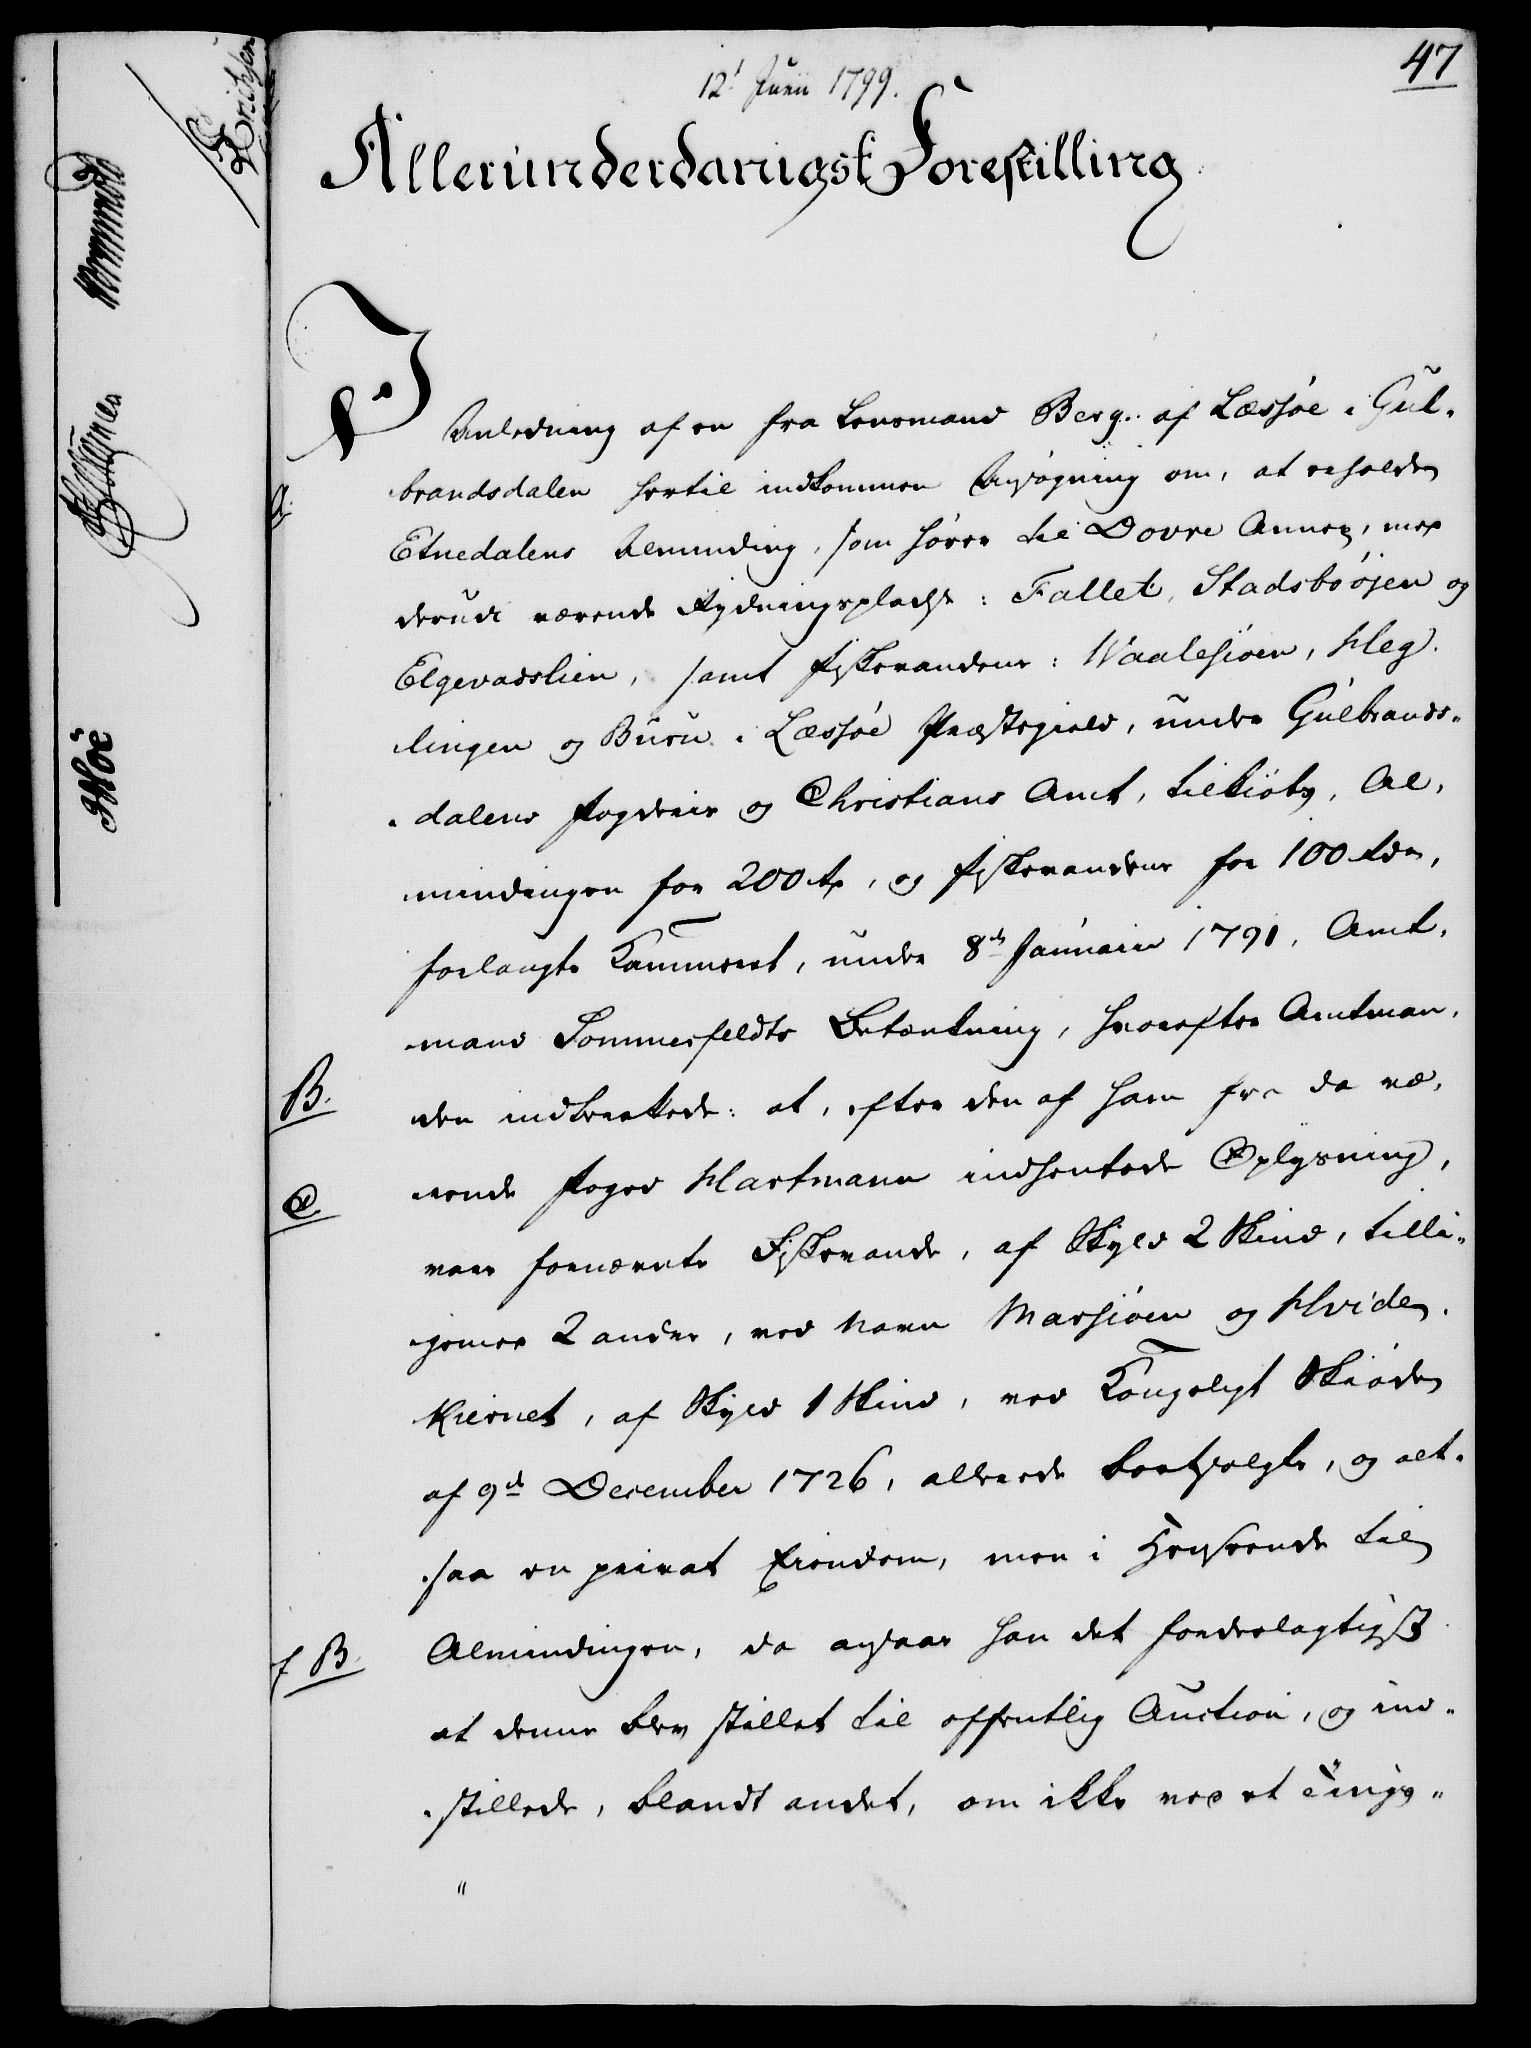 47
12t Junii 1799.
Allerunderdanigst Forestilling
I
Anledning af en fra Lensmand Berg af Læssøe i Gul-
brandsdalen hertil indkommen Ansøgning om, at erholde
A.
Etnedalens Alminding, som hører til Dovre Annex, med
derudi værende Rydningspladse: Fallet, Stadsbøöjen og
Elgevadslien, samt Fiskevandene: Waalesiøen, Heg-
lingen og Busu i Læssøe Præstegield, under Gulbrands-
dalens Fogderie og Christians Amt, tilkiøbs, Al-
mindingen for 200 rd, og Fiskevandene for 100 rdr,
forlangte Kammeret, under 8de Januarii 1791, Amt-
mand Sommerfeldts Betænkning, hvorefter Amtman-
B.
den indberettede: at, efter den af ham fra da væ-
C
rende Foged Hartmann indhentede Oplysning,
vare fornævnte Fiskevande, af Skyld 2 Skind, tilli-
gemed 2 andre, ved Navn Marsiøen og Hvide-
kiernet, af Skyld 1 Skind, ved Kongeligt Skiøde
af 9de December 1726, allerede bortsolgte, og alt-
saa en privat Eiendom, men i Henseende til
f B.
Almindingen, da ansaae han det fordeelagtigst
at denne blev stillet til offentlig Auction, og ind-
stillede, blandt andet, om ikke ved et Tings-
"
Wormskiold
Hoë